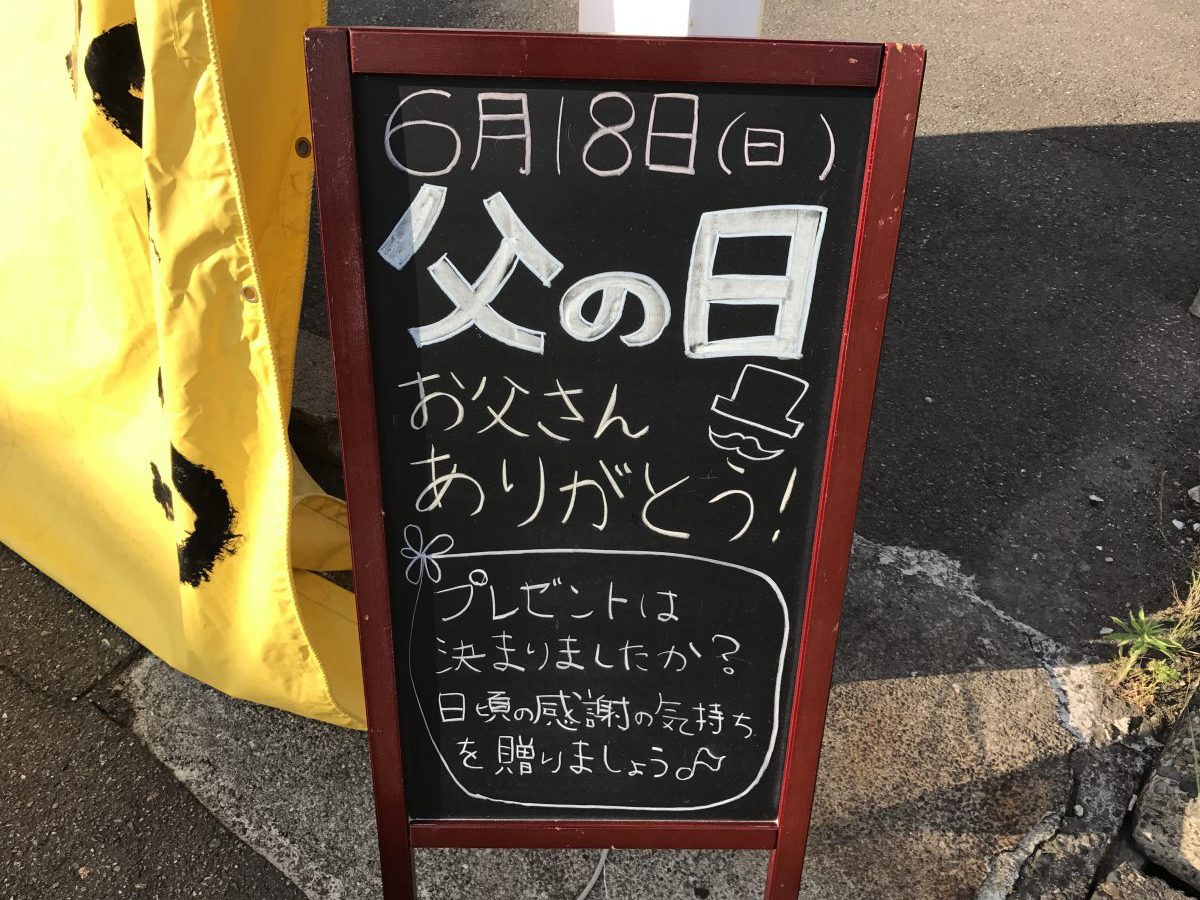 6月18日(日)
父の日
お父さん
ありがとう!
プレゼントは
決まりましたか?
日頃の感謝の気持ち
を贈りましょう♫